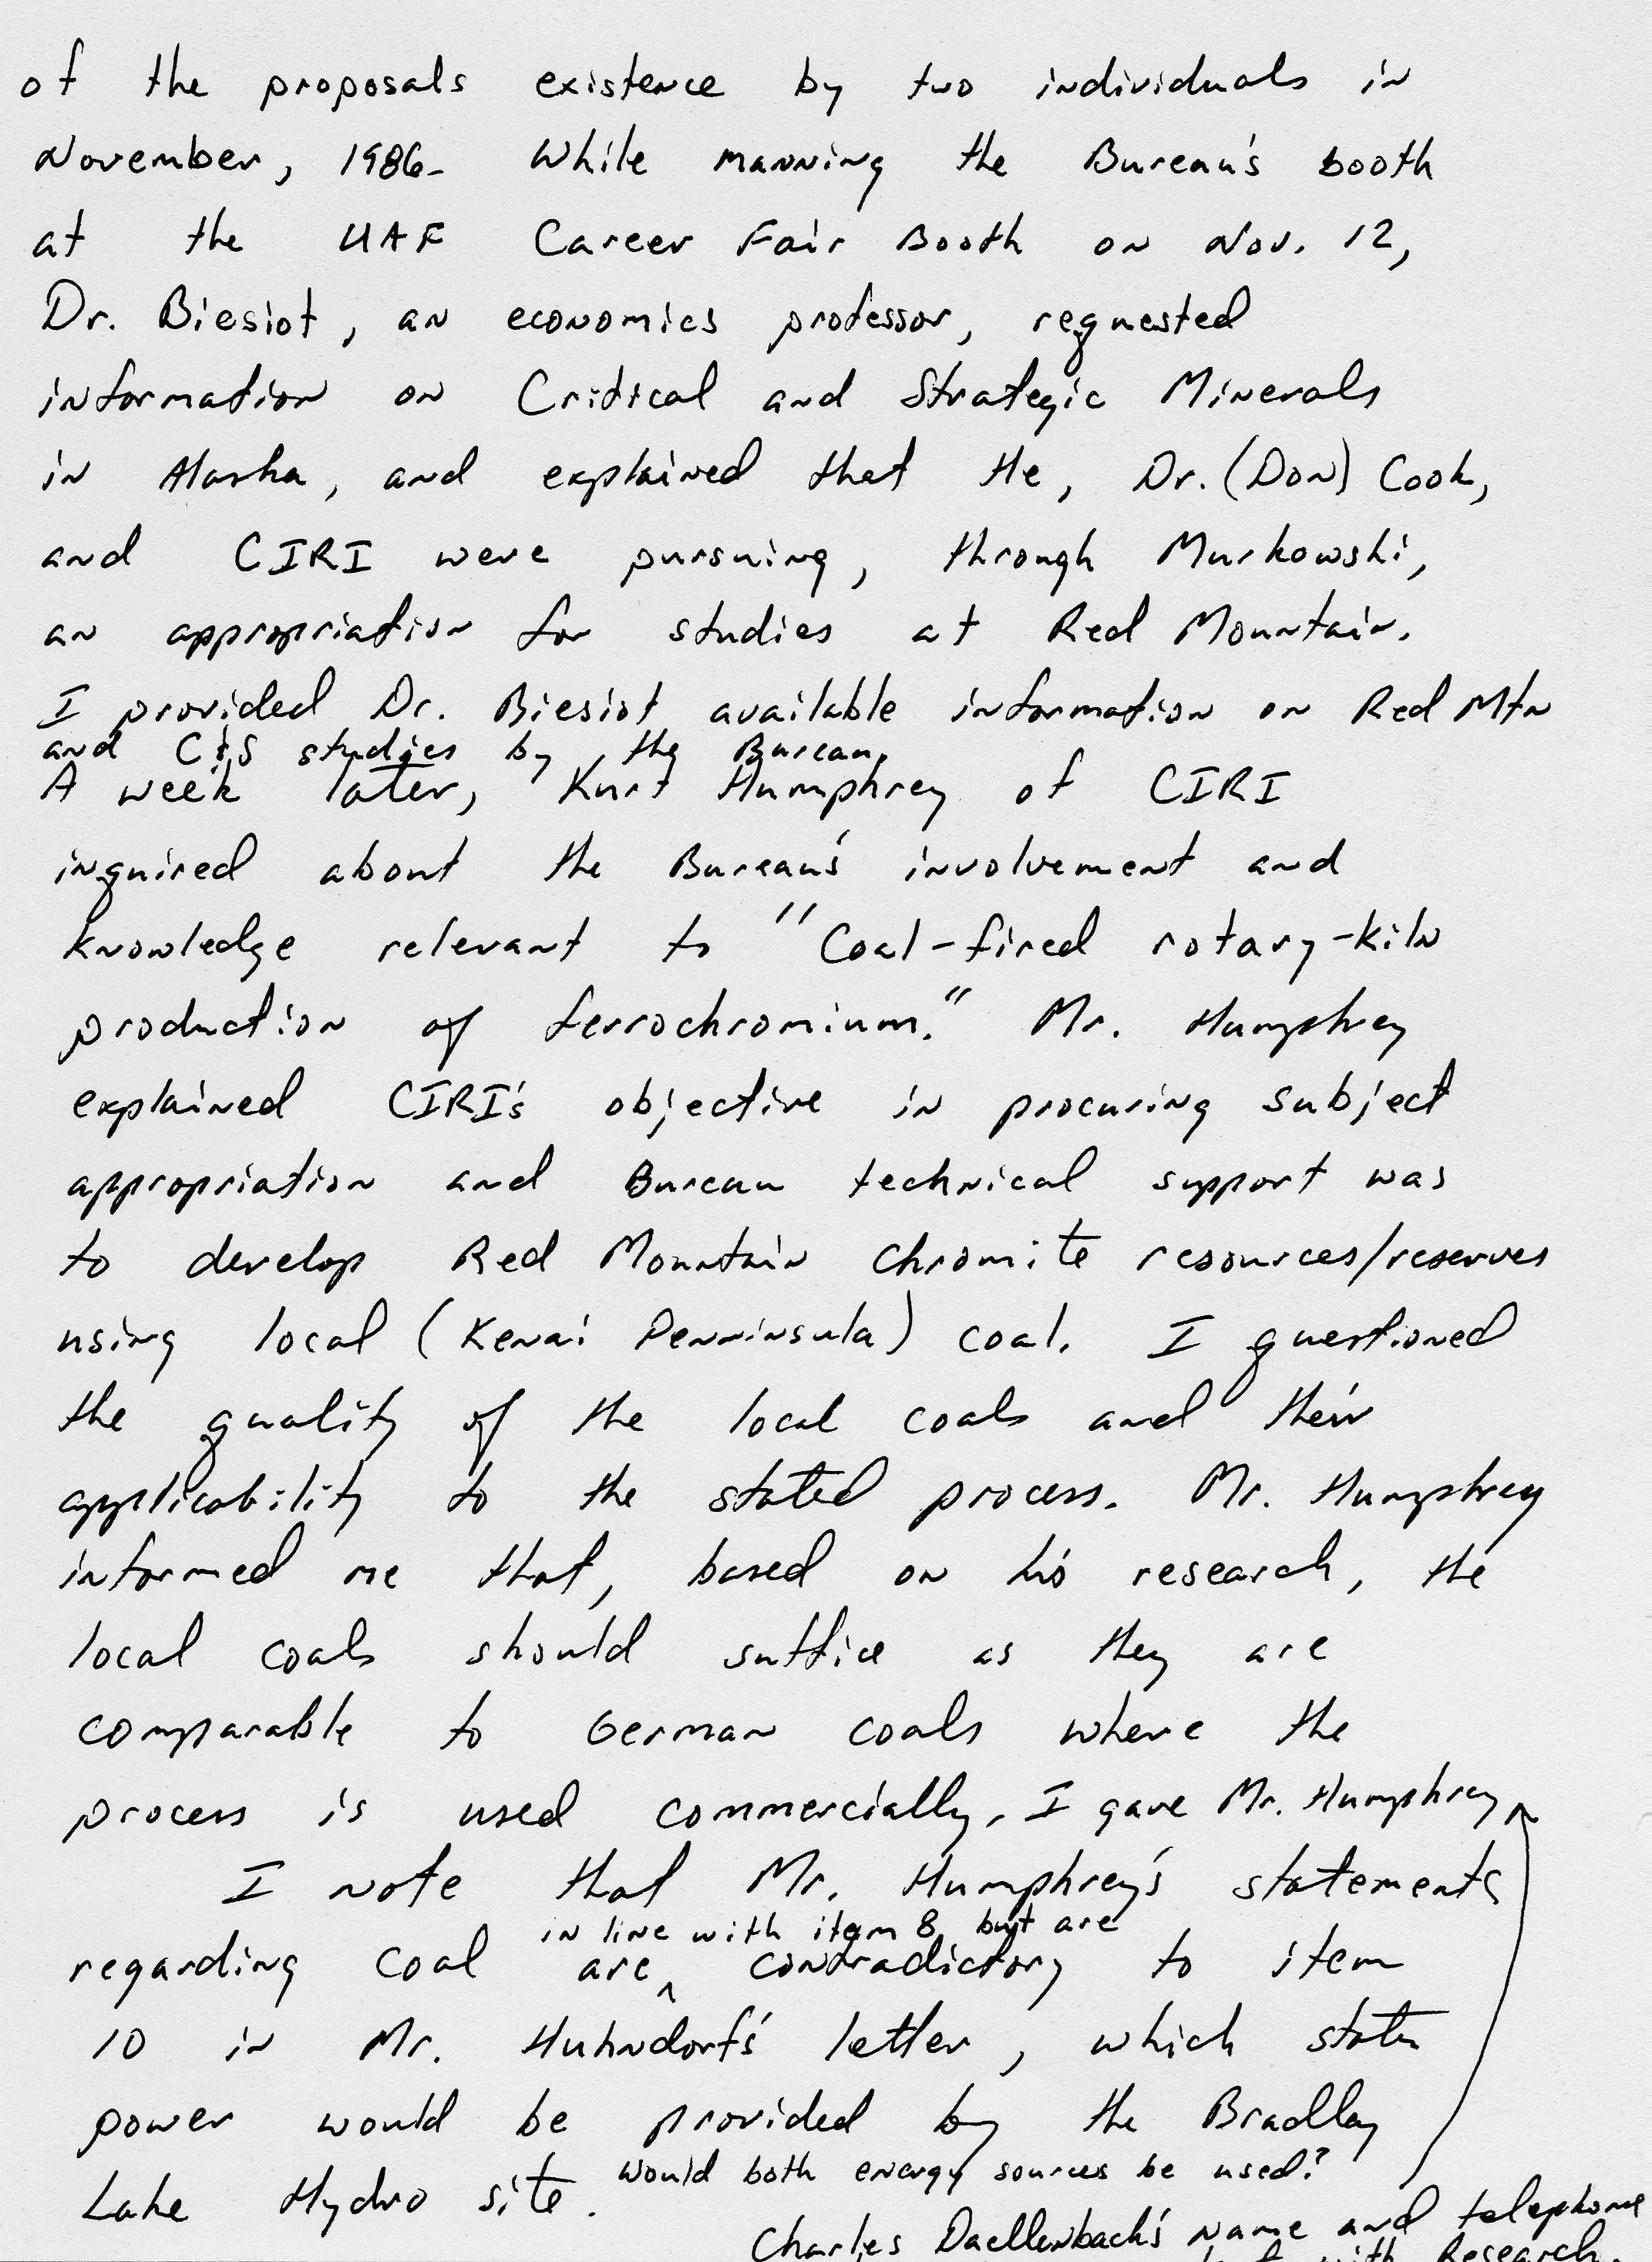 of the proposals existence by two individuals in
November, 1986. While manning the Bureau's booth
at the UAF Career Fair Booth on Nov. 12,
Dr. Biesiot, an economics professor, requested
information on Critical and Strategic Minerals
in Alaska, and explained that He, Dr. (Don) Cook,
and CIRI were pursuing, through Murkowski,
an appropriation for studies at Red Mountain.
I provided Dr. Biesiot available information on Red Mtn
and C&S studies by the Bureau.
A week later, Kurt Humphrey of CIRI
inquired about the Bureau's involvement and
knowledge relevant to "Coal-fired rotary-kiln
production of ferrochromium." Mr. Humphrey
explained CIRI's objective in procuring subject
appropriation and Bureau technical support was
to develop Red Mountain chromite resources/reserves
using local (Kenai Penninsula) coal. I questioned
the quality of the local coals and their
applicability to the stated process. Mr. Humphrey
informed me that, based on his research, the
local coals should suffice as they are
comparable to German coals where the
process is used commercially. I gave Mr. Humphrey
I note that Mr. Humphrey's statements
in line with item 8, but are
regarding coal are contradictory to item
10 in Mr. Huhndorf's letter, which states
power would be provided by the Bradley
Lake Hydro site. Would both energy sources be used?
Charles Daellenbach's name and telephone
with Research